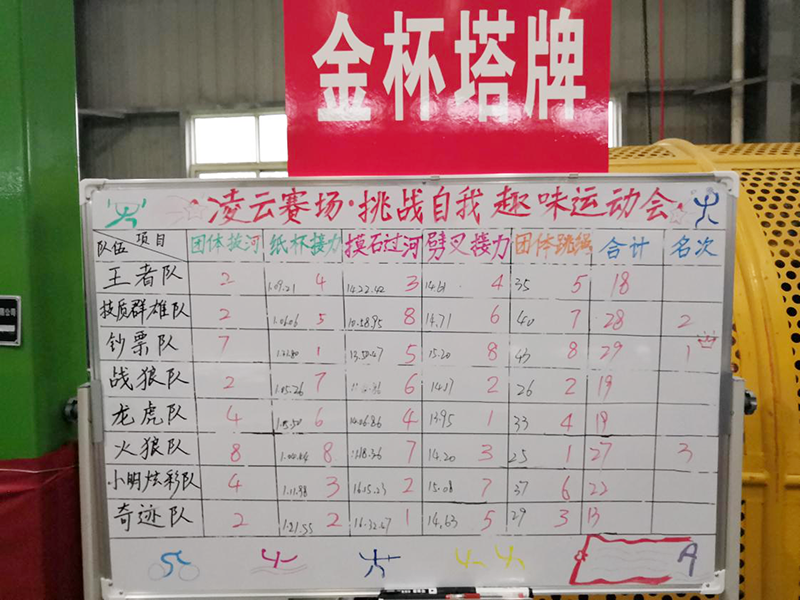 金杯塔牌
凌云赛场·挑战自我 趣味运动会
队伍 项目 团体拔河 纸杯接力 摸石过河 劈叉接力 团体跳绳 合计 名次
王者队 2 1.09.21 4 14.22.42 3 14.61 4 35 5 18
技质群雄队 2 1.06.06 5 10.58.95 8 14.71 6 40 7 28 2
钞票队 7 1 13.50.47 5 15.20 8 43 8 29 1
战狼队 2 1.05.26 7 6 14.17 2 26 2 19
龙虎队 4 1.05.50 6 14.06.86 4 13.95 1 33 4 19
火狼队 8 1.04.44 8 11.18.36 7 14.20 3 25 1 27 3
小明炫彩队 4 1.11.98 3 16.15.23 2 15.08 7 37 6 22
奇迹队 2 1.21.55 2 16.32.67 1 14.63 5 29 3 13